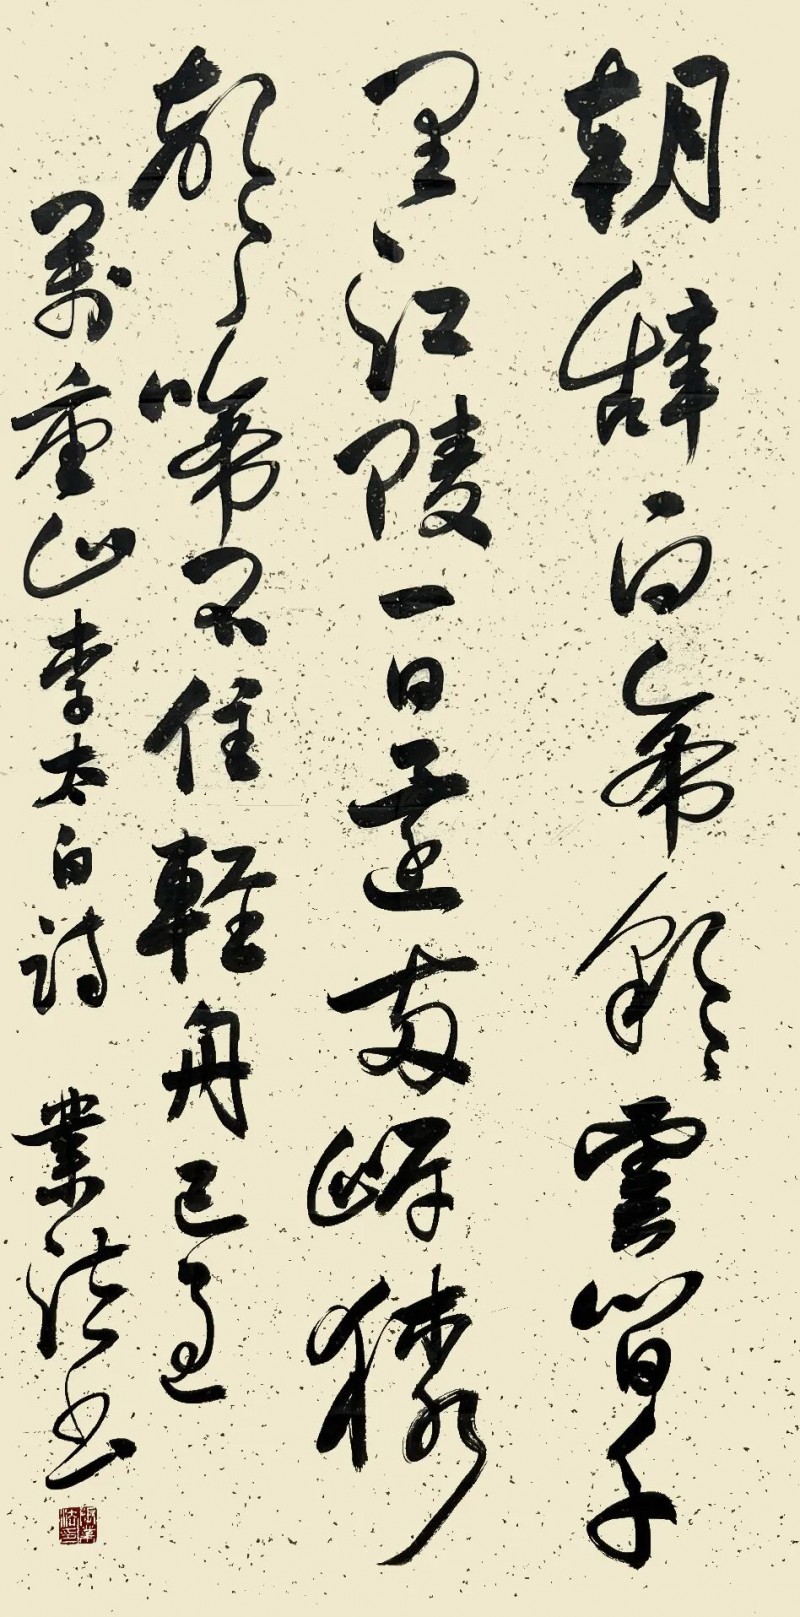 朝辞白帝彩雲間千
里江陵一日還兩岸猿
聲々啼不住輕舟已過
萬重山李太白詩 業法書